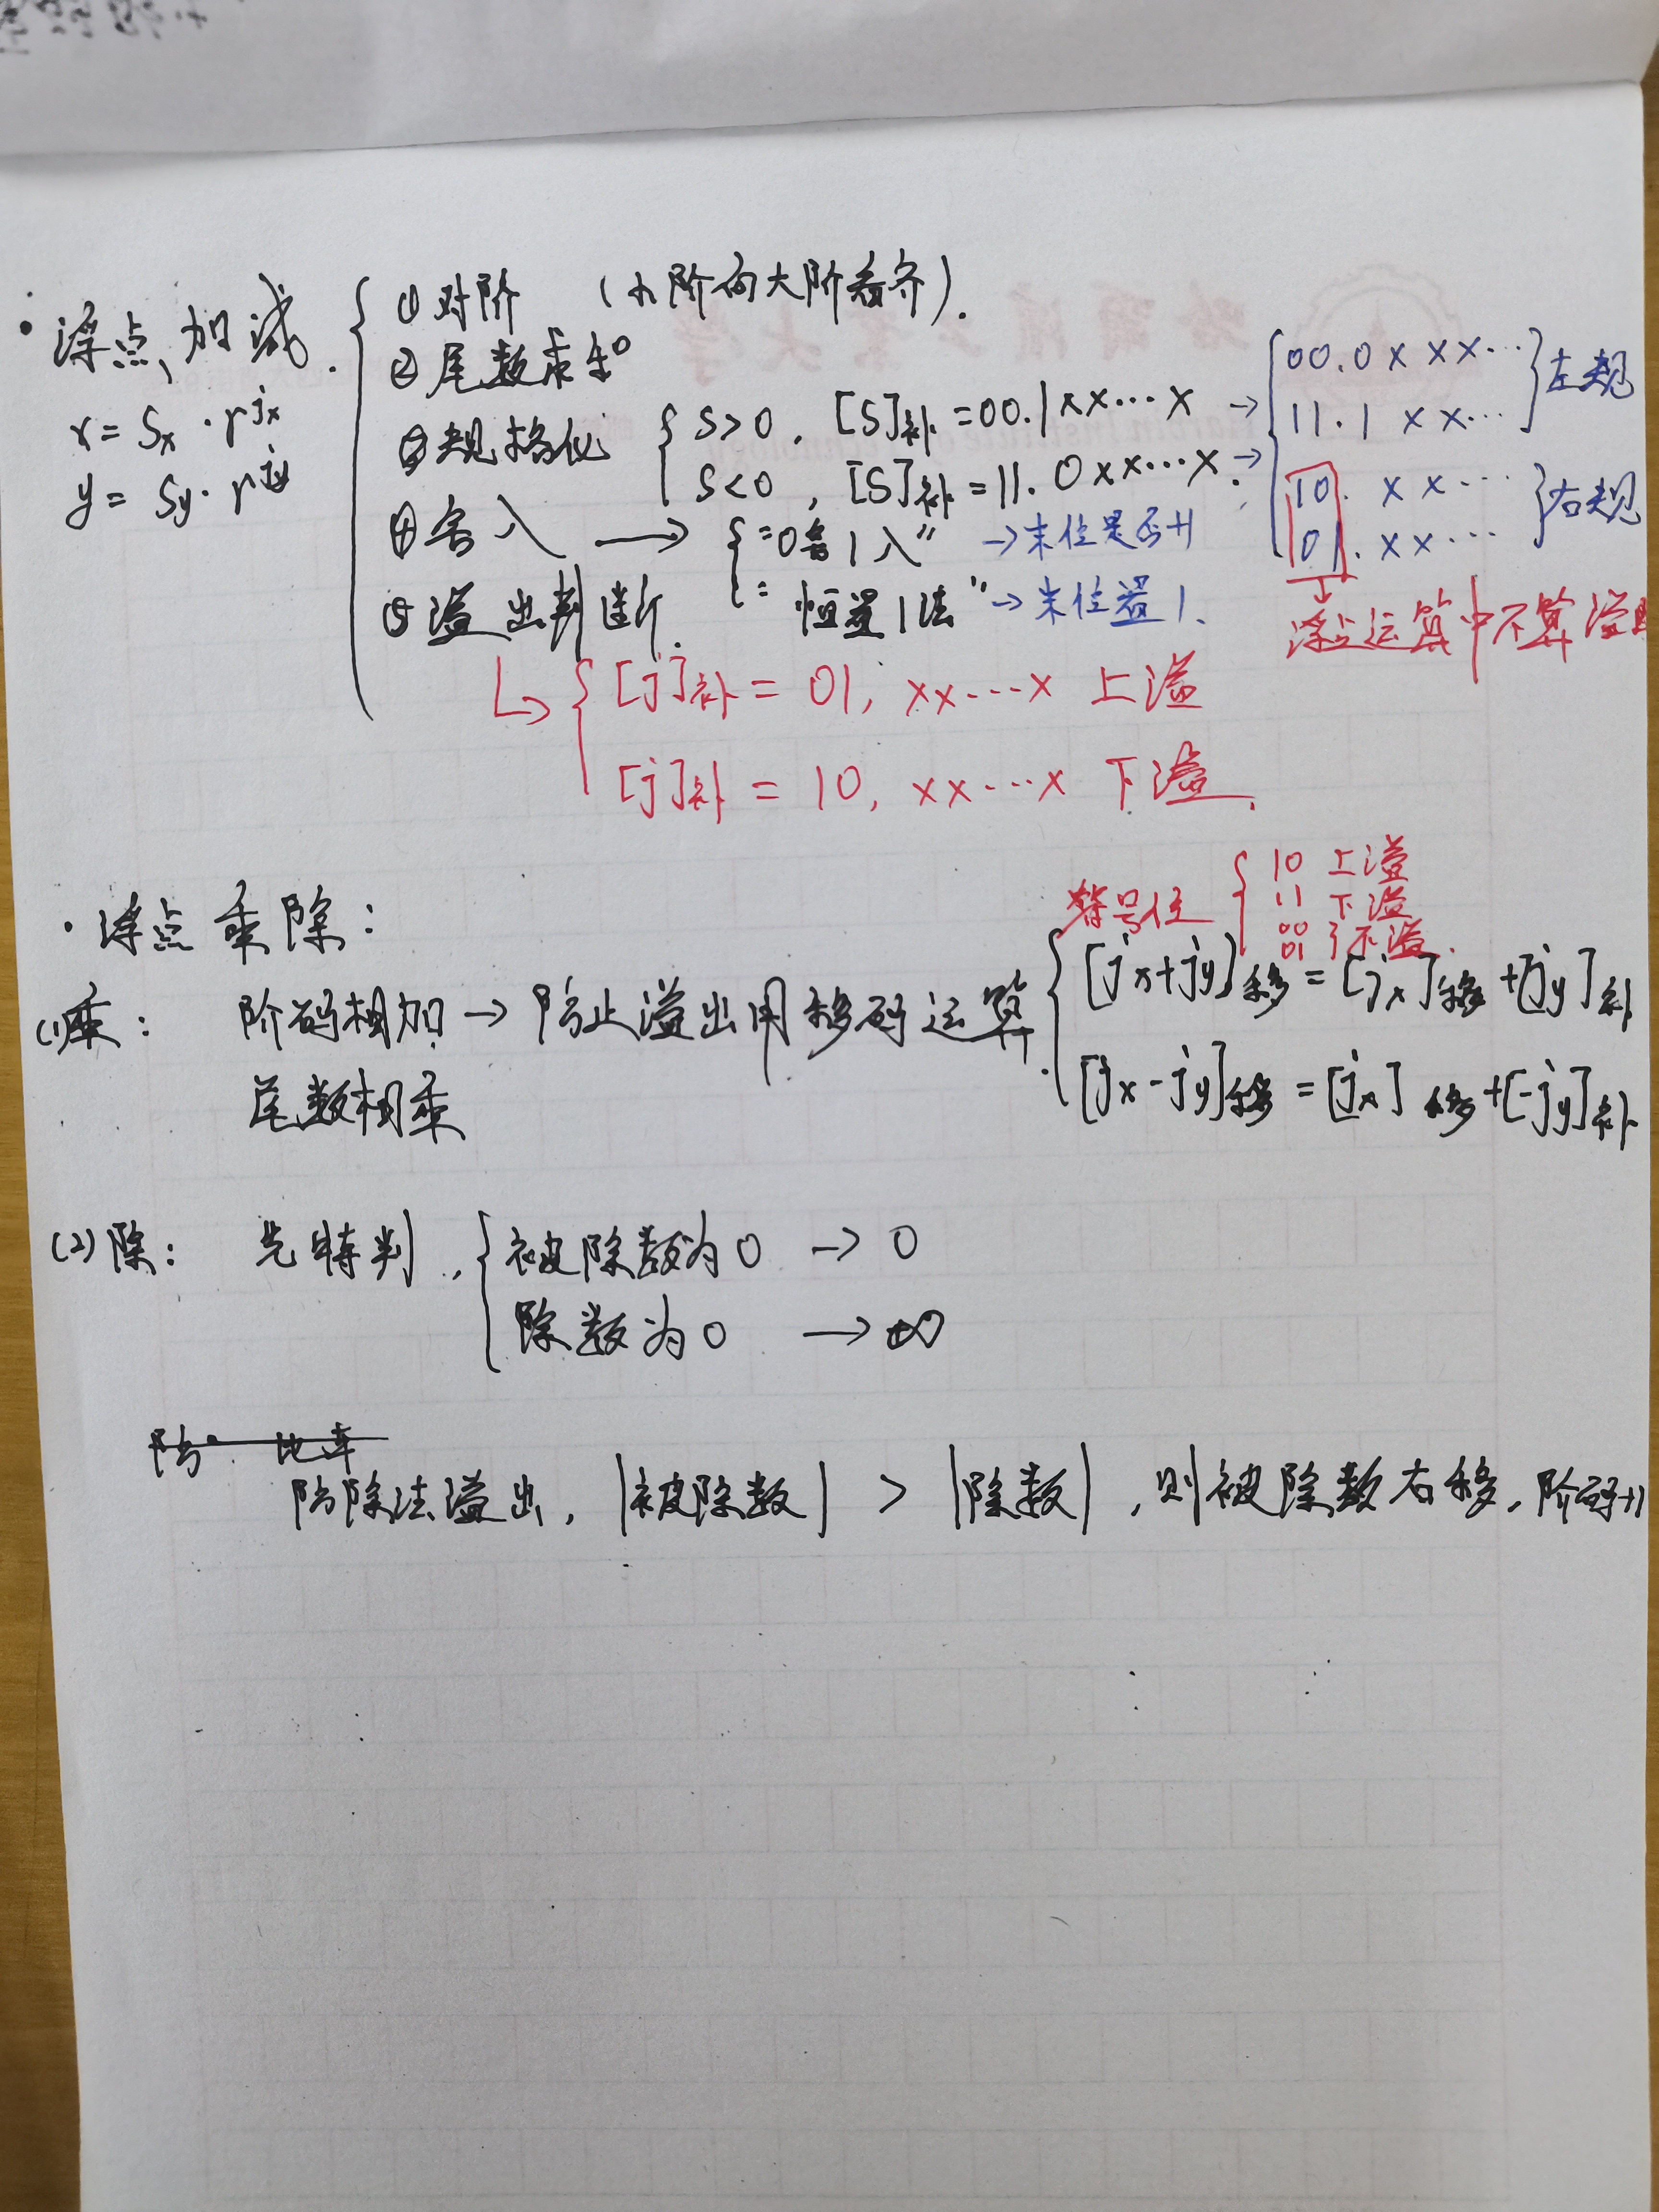 · 浮点加减.
x = Sx · r^jx
y = Sy · r^jy
① 对阶 (小阶向大阶看齐).
② 尾数求和
③ 规格化 { S>0, [S]补 = 00.1××…× → { 00.0×××… 11.1××… } 左规
S<0, [S]补 = 11.0××…×. → { 10.××… 01.××… } 右规
浮点运算中不算溢出
④ 舍入 → { "0舍1入" → 末位是否+1
"恒置1法" → 末位置1.
⑤ 溢出判断.
↳ { [j]补 = 01, ××…× 上溢
[j]补 = 10, ××…× 下溢.
· 浮点乘除:
符号位 { 10 上溢
11 下溢
00 01 } 不溢.
(1)乘: 阶码相加 → 防止溢出用移码运算. { [jx+jy]移 = [jx]移 + [jy]补
尾数相乘
[jx-jy]移 = [jx]移 + [-jy]补
(2)除: 先特判, { 被除数为0 → 0
除数为0 → ∞
防除法溢出, |被除数| > |除数|, 则被除数右移, 阶码+1